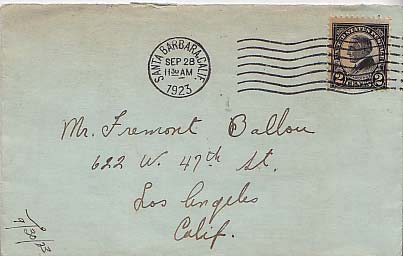 SANTA BARBARA, CALIF.
SEP 28
11 30 AM
1923
UNITED STATES POSTAGE
2 CENTS 2
Mr. Fremont Ballou
622 W. 47th St.
Los Angeles
Calif.
9/30/23